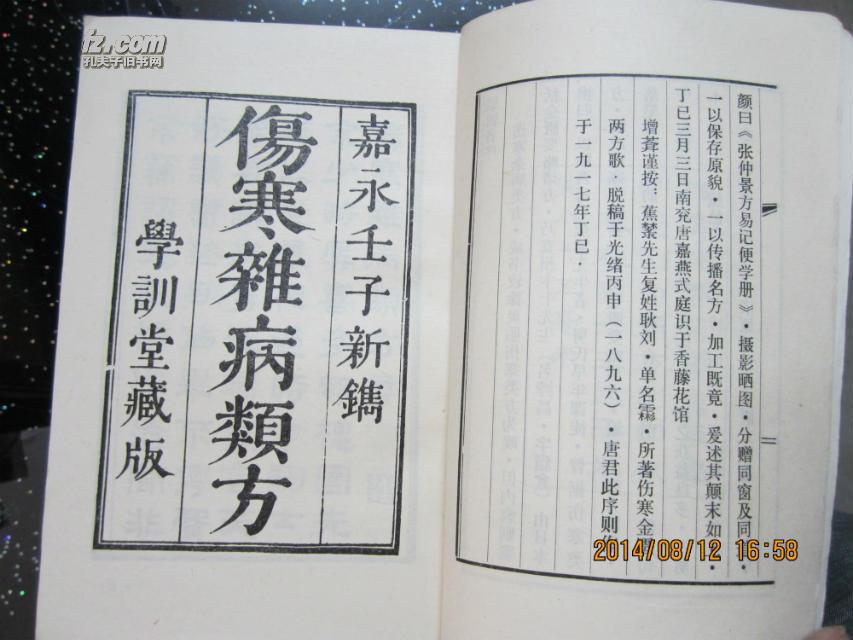 嘉永壬子新鐫
傷寒雜病類方
學訓堂藏版
颜曰《张仲景方易记便学册》·摄影晒图·分赠同窗及同
一以保存原貌·一以传播名方·加工既竟·爰述其颠末如
丁巳三月三日南兖唐嘉燕式庭识于香藤花馆
增耊谨按：蕉蘩先生复姓耿刘·单名霦·所著伤寒金匮
两方歌·脱稿于光绪丙申（一八九六）·唐君此序则作
于一九一七年丁巳·
7z.com
孔夫子旧书网
2014/08/12 16:58